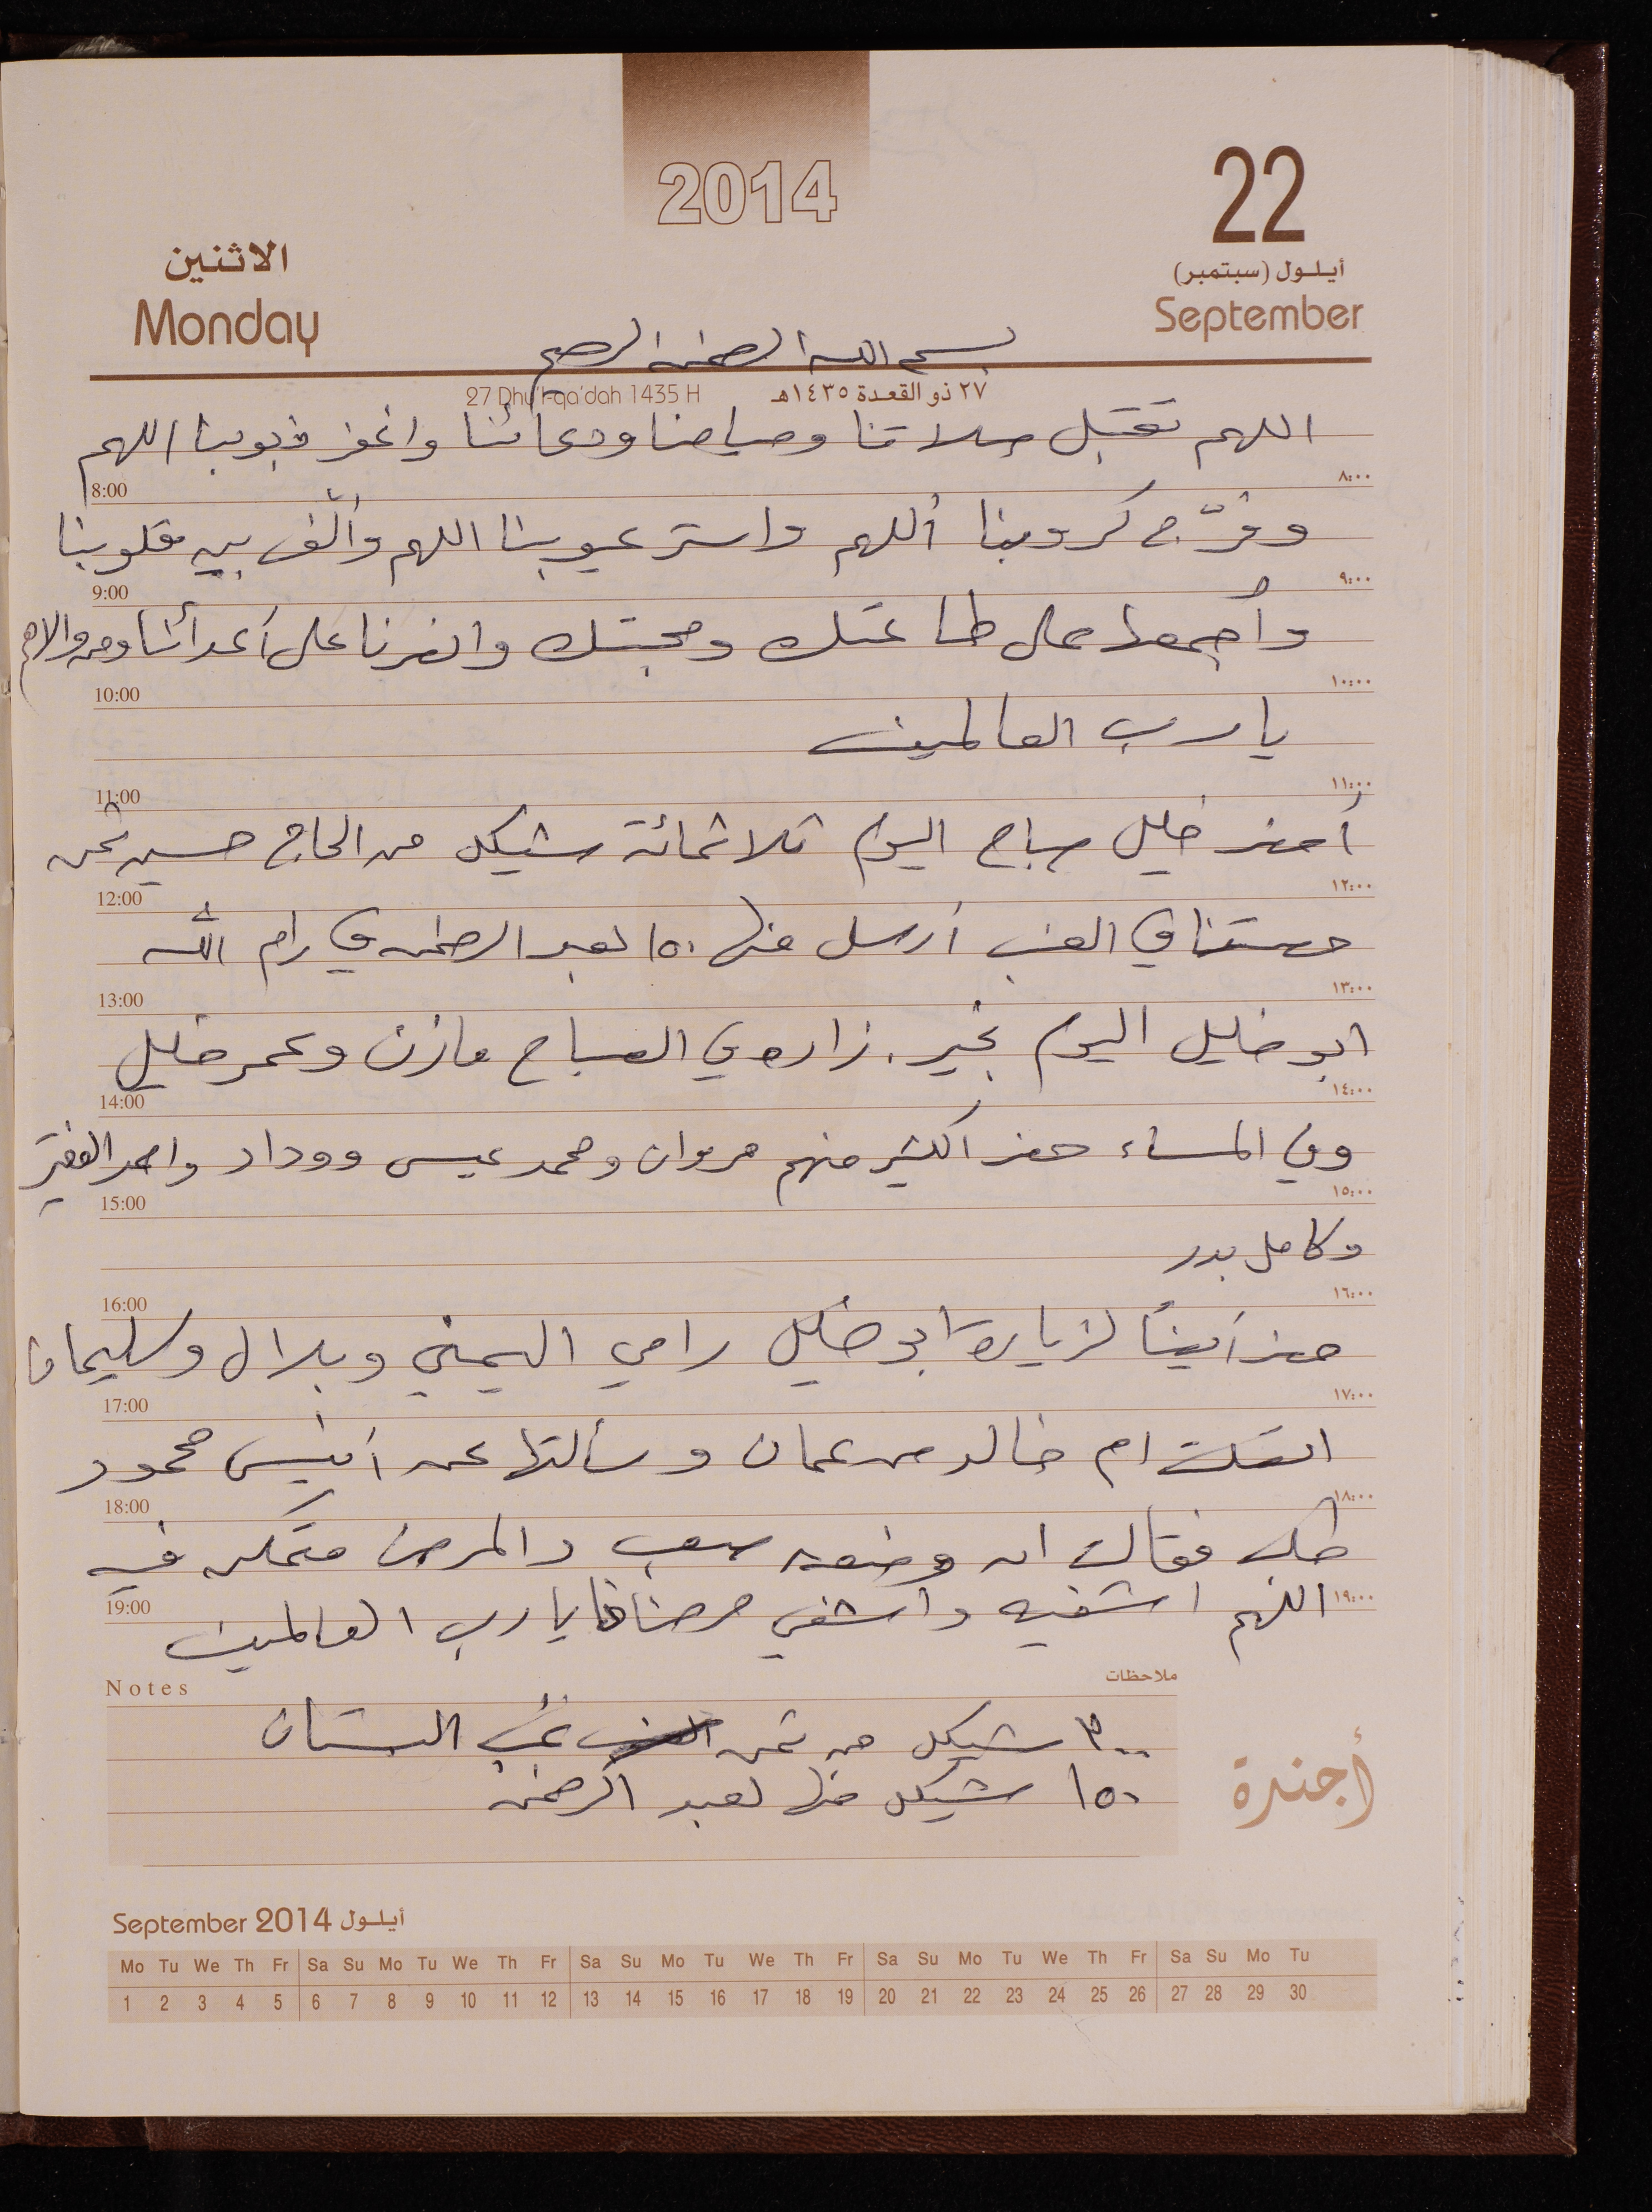 2014
22
أيـلـول (سبتمبر)
September
الاثنين
Monday
بسم الله الرحمن الرحيم
٢٧ ذو القعدة ١٤٣٥هـ
27 Dhu'l-qa'dah 1435 H
اللهم تقبل صلاتنا وصيامنا ودعائنا واغفر ذنوبنا اللهم
8:00 ٨:٠٠
وفرّج كروبنا أللهم واستر عيوبنا اللهم وألّف بين قلوبنا
9:00 ٩:٠٠
وأجمعنا على طاعتك ومحبتك وانصرنا على أعدائنا ومن والاهم
10:00 ١٠:٠٠
يا رب العالمين
11:00 ١١:٠٠
أحضر خليل صباح اليوم ثلاثمائة شيكل من الحاج حسين ثمن
12:00 ١٢:٠٠
حصتنا في العنب أرسل منها ١٥٠ لعبد الرحمن في رام الله
13:00 ١٣:٠٠
ابو خليل اليوم بخير. زاره في الصباح مازن وعمر خليل
14:00 ١٤:٠٠
وفي المساء حضر اكثر منهم مروان ومحمد عيسى ووداد واحمد الفقير
15:00 ١٥:٠٠
وكامل بدر
16:00 ١٦:٠٠
حضر أيضاً لزيارة ابو خليل رامي اليمني وبلال وسليمان
17:00 ١٧:٠٠
اتصلت ام خالد من عمان وسألتها عن أنيس محمود
18:00 ١٨:٠٠
فقالت ان وضعه صعب والمرض متمكن فيه
19:00 ١٩:٠٠
اللهم اشفيه واشفي مرضانا يا رب العالمين
Notes ملاحظات
٣٠٠ شيكل من ثمن عنب البستان
١٥٠ شيكل منها لعبد الرحمن
أجندة
September 2014 أيـلـول
Mo Tu We Th Fr Sa Su Mo Tu We Th Fr Sa Su Mo Tu We Th Fr Sa Su Mo Tu We Th Fr Sa Su Mo Tu
1 2 3 4 5 6 7 8 9 10 11 12 13 14 15 16 17 18 19 20 21 22 23 24 25 26 27 28 29 30